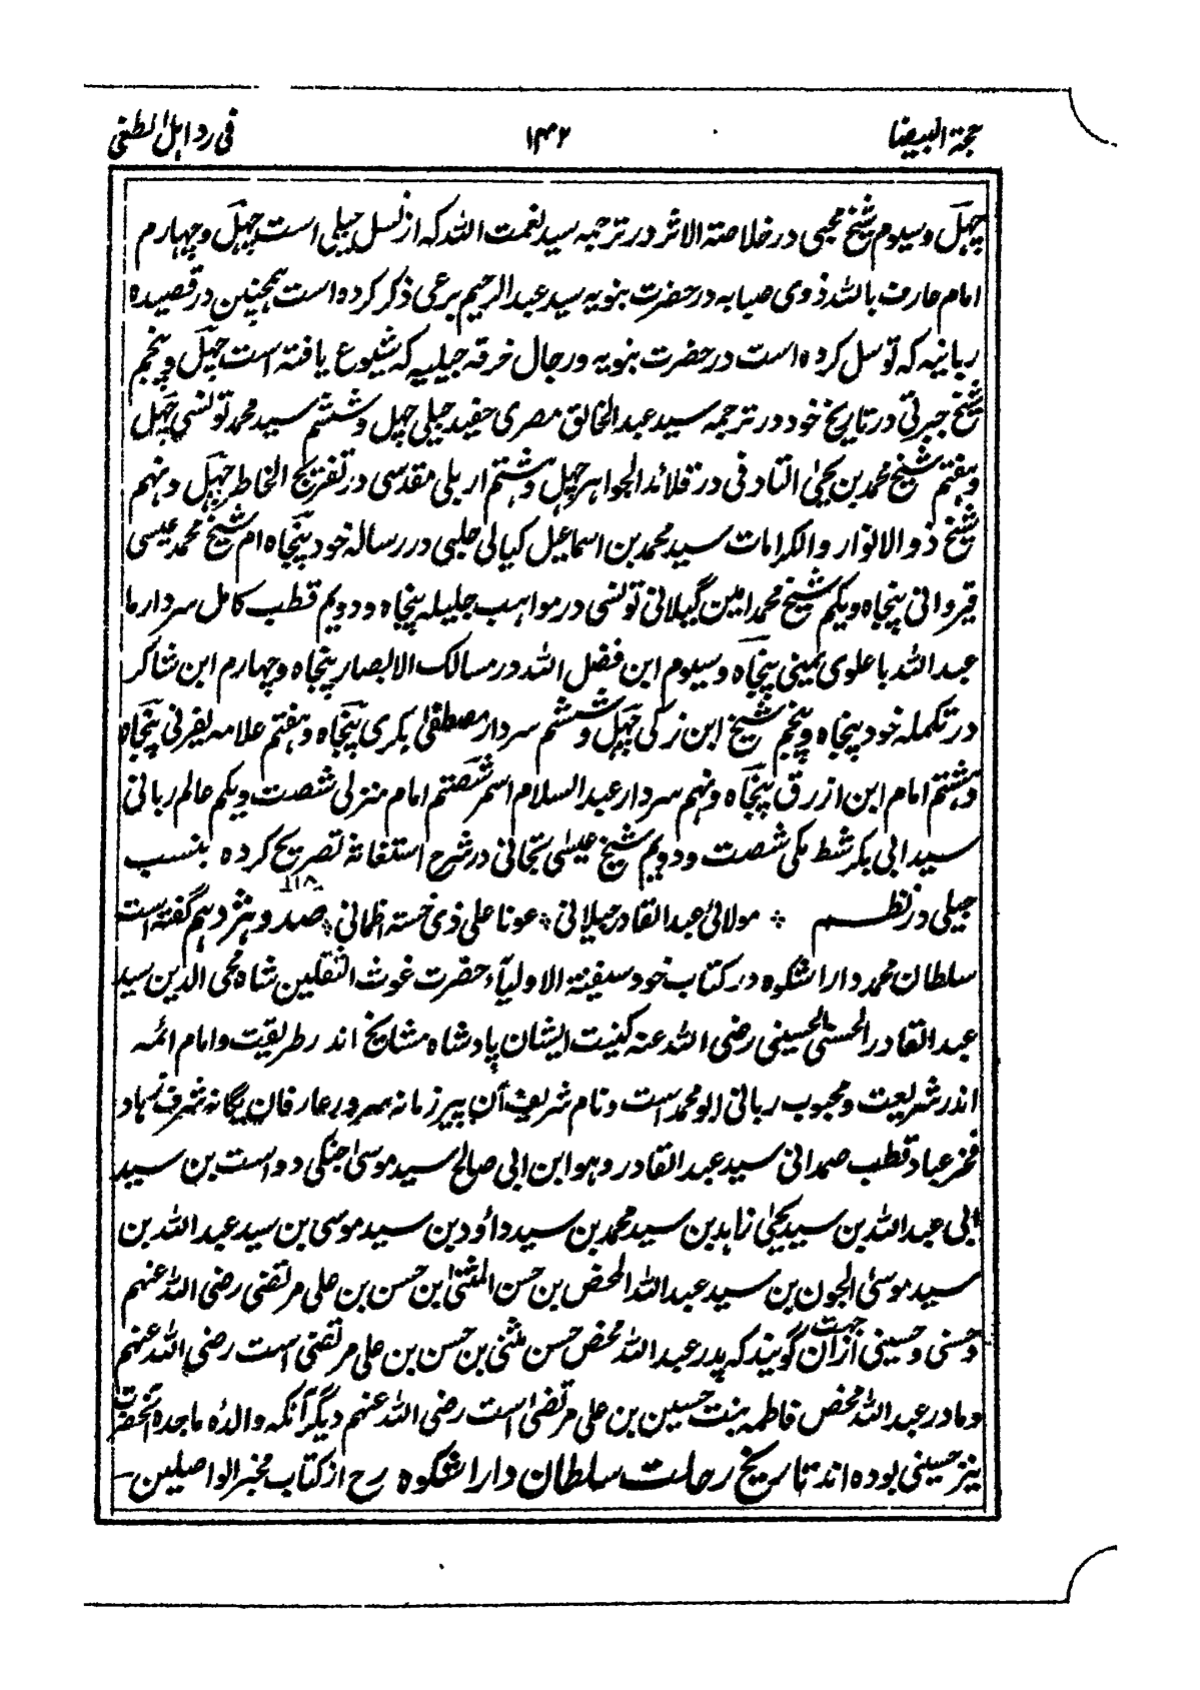 حجة البیضا ۱۴۲ فی رد اهل الطغی
چهل و سیوم شیخ محبی در خلاصة الاثر در ترجمه سید نعمت الله که از نسل جیلی است چهل و چهارم
امام عارف بالله ذوی صبابه در حضرت بنویه سید عبد الرحیم برعی ذکر کرده است همچنین در قصیده
ربانیه که توسل کرده است در حضرت بنویه و رجال خرقه جیلیه که شیوع یافته است چهل و پنجم
شیخ جبرتی در تاریخ خود در ترجمه سید عبد الخالق مصری حفید جیلی چهل و ششم سید محمد تونسی چهل
و هفتم شیخ محمد بن یحیٰی التادفی در قلائد الجواهر چهل و هشتم اربلی مقدسی در تفریح الخاطر چهل و نهم
شیخ ذو الانوار والکرامات سید محمد بن اسماعیل کیالی حلبی در رساله خود پنجاه ام شیخ محمد عیسی
قیروانی پنجاه ویکم شیخ محمد امین گیلانی تونسی در مواهب جلیله پنجاه و دویم قطب کامل سردار ما
عبد الله باعلوی یمینی پنجاه و سیوم ابن فضل الله در مسالک الابصار پنجاه و چهارم ابن شاکر
در تکمله خود پنجاه و پنجم شیخ ابن زکی چهل و ششم سردار مصطفیٰ بکری پنجاه و هفتم علامه یفرنی پنجاه
و هشتم امام ابن ازرق پنجاه و نهم سردار عبد السلام اسمر شصتم امام منزلی شصت ویکم عالم ربانی
سید ابی بکر شط مکی شصت و دویم شیخ عیسٰی تجانی در شرح استغاثهٔ تصریح کرده بنسب
جیلی در نظم ۞ مولائی عبد القادر جیلانی ۞ عونا علی ذی خسته اظمانی ۞ صد و هژدهم ۱۱۸ گفته است
سلطان محمد دارا شکوه در کتاب خود سفینة الاولیآء حضرت غوث الثقلین شاه محی الدین سید
عبد القادر الحسنی الحسینی رضی الله عنه کنیت ایشان پادشاه مشایخ اند رطریقت و امام ائمه
اندر شریعت و محبوب ربانی ابو محمد است و نام شریف آن پیر زمانه سرور عارفان یگانه شرف زهاد
فخر عباد قطب صمدانی سید عبد القادر وهو ابن ابی صالح سید موسیٰ جنگی دوست بن سید
ابی عبد الله بن سید یحیٰی زاهد بن سید محمد بن سید داؤد بن سید موسی بن سید عبد الله بن
سید موسیٰ الجون بن سید عبد الله المحض بن حسن المثنیٰ بن حسن بن علی مرتضی رضی الله عنهم
و حسنی و حسینی ازان جهت گویند که پدر عبد الله محض حسن مثنی بن حسن بن علی مرتضی است رضی الله عنهم
و مادر عبد الله محض فاطمه بنت حسین بن علی مرتضیٰ است رضی الله عنهم دیگر آنکه والدهٔ ماجده آنحضرت
نیز حسینی بوده اند تاریخ رحلت سلطان دارا شکوه رح از کتاب مخبر الواصلین